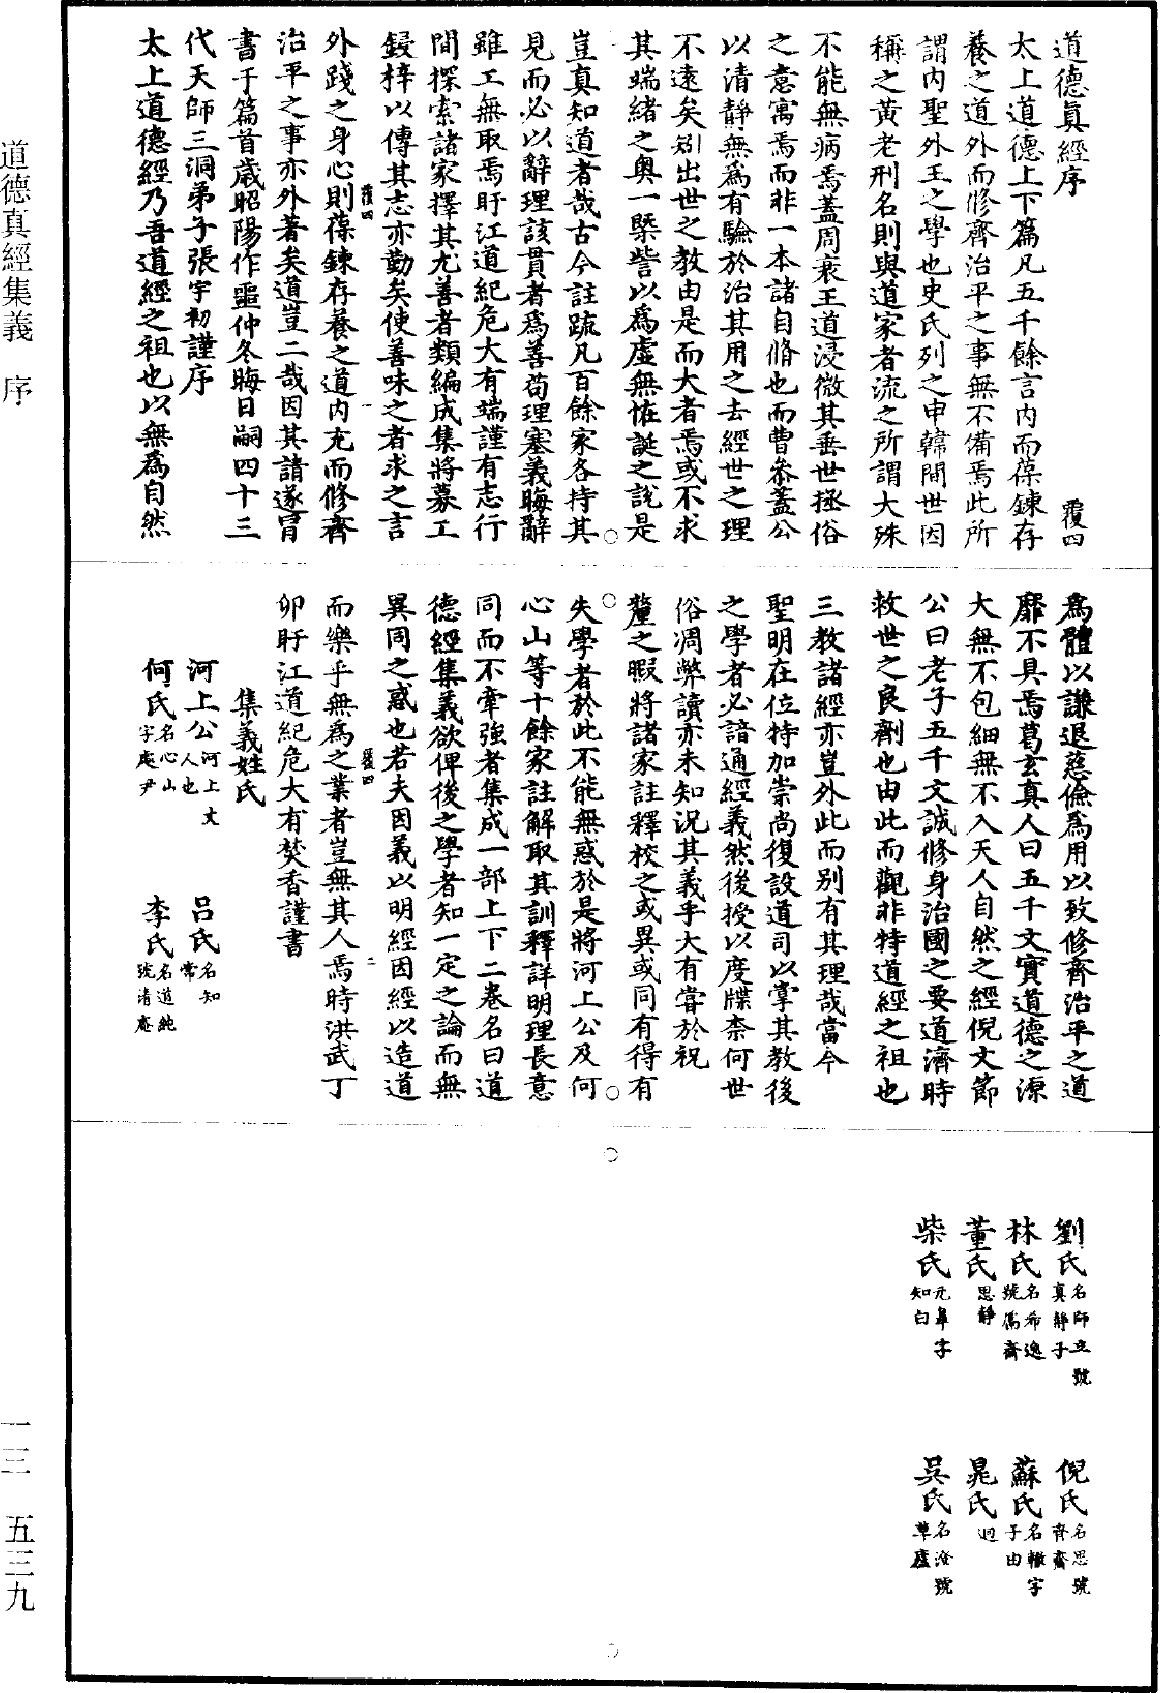 道德眞經序
覆四
太上道德上下篇凡五千餘言內而葆鍊存
養之道外而修齊治平之事無不備焉此所
謂內聖外王之學也史氏列之申韓間世因
稱之黃老刑名則與道家者流之所謂大殊
不能無病焉蓋周衰王道浸微其垂世拯俗
之意寓焉而非一本諸自脩也而曹參蓋公
以清靜無為有驗於治其用之去經世之理
不遠矣矧出世之教由是而大者焉或不求
其端緒之奧一槩訾以為虛無恠誕之說是
豈真知道者哉古今註疏凡百餘家各持其
見而必以辭理該貫者為善苟理塞義晦辭
雖工無取焉盱江道紀危大有端謹有志行
間探索諸家擇其尤善者類編成集將募工
鋟梓以傳其志亦勤矣使善味之者求之言
覆四
外踐之身心則葆鍊存養之道內充而修齊
治平之事亦外著矣道豈二哉因其請遂冒
書于篇首歲昭陽作噩仲冬晦日嗣四十三
代天師三洞弟子張宇初謹序
太上道德經乃吾道經之祖也以無為自然
為體以謙退慈儉為用以致修齊治平之道
靡不具焉葛玄真人曰五千文實道德之源
大無不包細無不入天人自然之經倪文節
公曰老子五千文誠修身治國之要道濟時
救世之良劑也由此而觀非特道經之祖也
三教諸經亦豈外此而別有其理哉當今
聖明在位特加崇尚復設道司以掌其教後
之學者必諳通經義然後授以度牒柰何世
俗凋弊讀亦未知況其義乎大有嘗於祝
釐之暇將諸家註釋校之或異或同有得有
失學者於此不能無惑於是將河上公及何
心山等十餘家註解取其訓釋詳明理長意
同而不牽強者集成一部上下二卷名曰道
德經集義欲俾後之學者知一定之論而無
異同之惑也若夫因義以明經因經以造道
覆四
二
而樂乎無為之業者豈無其人焉時洪武丁
卯盱江道紀危大有焚香謹書
集義姓氏
河上公河上丈人也
呂氏名知常
何氏名心山字庵尹
李氏名道純號清庵
劉氏名師立號真靜子
倪氏名思號齊齋
林氏名希逸號鬳齋
蘇氏名轍字子由
董氏思靜
晁氏迥
柴氏元皐字知白
吳氏名澄號草廬
道德真經集義 序
一三 五三九